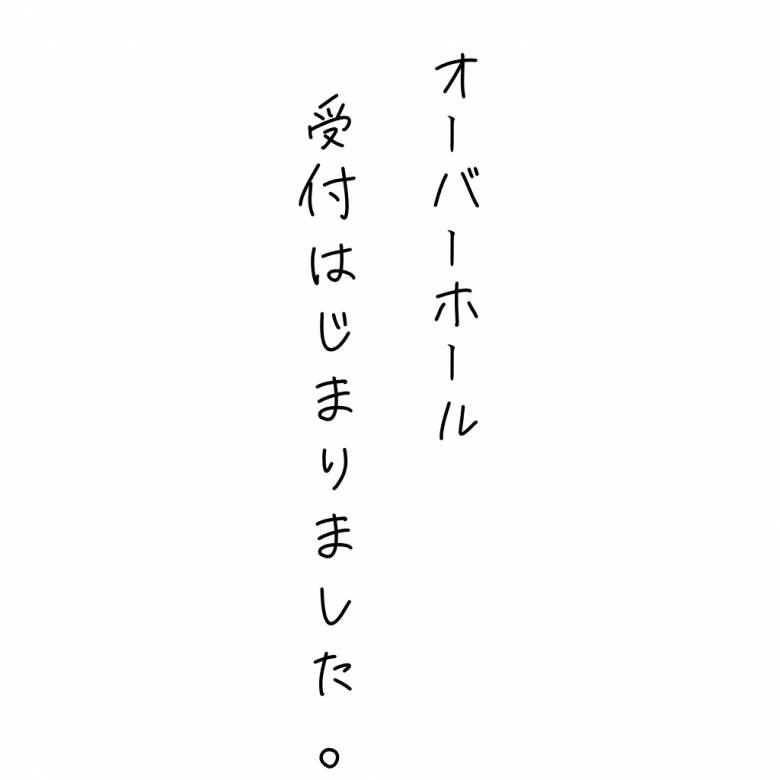 オーバーホール
受付はじまりました。